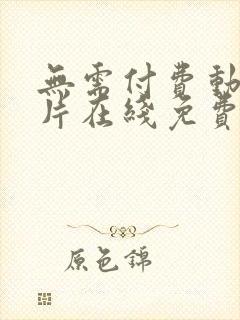 無需付費動
片在綫免費
原色錦